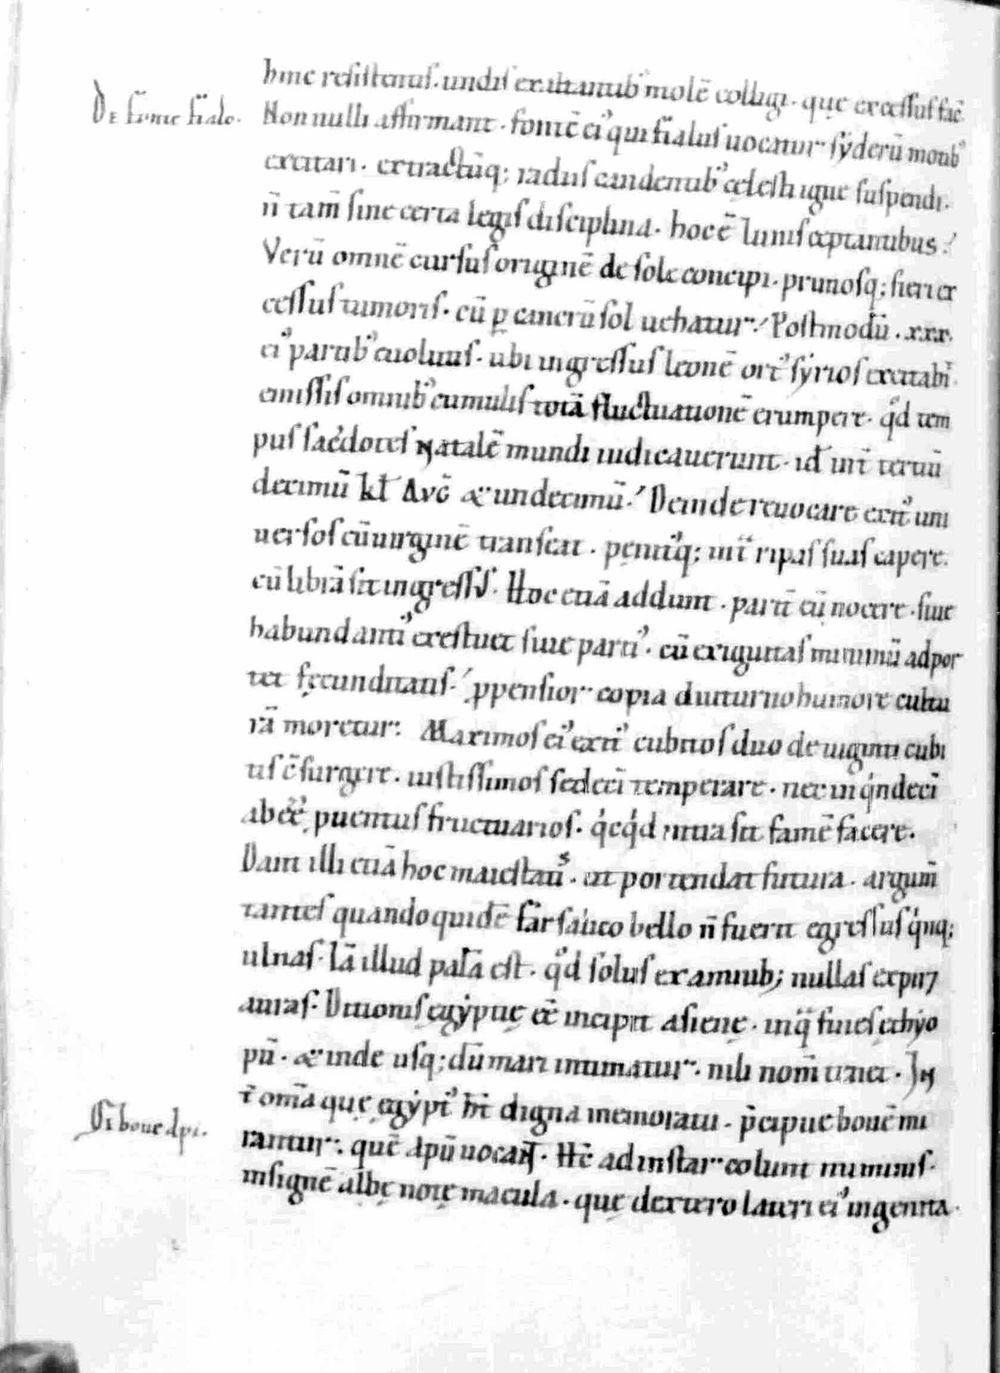 hinc resistenus. undis exultantib' molē colligi. quę excessus fac̄
De fonte fialo.
Non nulli affirmant. fontē ei' qui fialus uocatur sẏderū motib'
excitari. extractūq; radiis candentib' cęlesti igne suspendi.
n̄ tam̄ sine certa legis disciplina. hoc ē lunis cęptantibus.
Verū omnē cursus originē de sole concipi. primosq; fieri ex
cessus tumoris. cū ꝑ cancrū sol uehatur. Postmodū .xxx.
ei' partib' euolutis. ubi ingressus leonē ort' sẏrios excitabit.
emissis omnib' cumulis totā fluctuationē erumpere. qd̄ tem
pus sacdotes natalē mundi iudicauerunt. id ē int̄ tertiū
decimū kł Auḡ & undecimū. Deinde reuocare exit' uni
uersos cū uirginē transeat. penit'q; int̄ ripas suas capere.
cū librā sit ingressus. Hoc etiā addunt. parit̄ eū nocere. siue
habundanti' exęstuet siue parti'. cū exiguitas minimū adpor
tet fęcunditatis. ꝓpensior copia diuturno humore cultu
rā moretur. Maximos ei' exit' cubitos duo de uiginti cubi
tis c̄surgere. iustissimos sedecī temperare. nec in qndecī
abeē puentus fructuarios. qcqd intra sit famē facere.
Dant illi etiā hoc maiestatis. ut portendat futura. argum̄
tantes quando quidē farsalico bello n̄ fuerit egressus qnq;
ulnas. Iā illud palā est. qd̄ solus ex amnib; nullas expirꝫ
auras. Ditionis ęgẏptię eē incipit a sienę. inq̄ fines ęthẏo
pū. & inde usq; dū mari intimatur. nili nom̄ tenet. In
t̄ om̄a quę ęgẏpt' ht̄ digna memoratu. p̄cipue bouē mi
De boue Api.
rantur. quē Apū uocant. Hc̄ ad instar colunt numinis.
insignē albę notę macula. quę dextero lateri ei' ingenita.